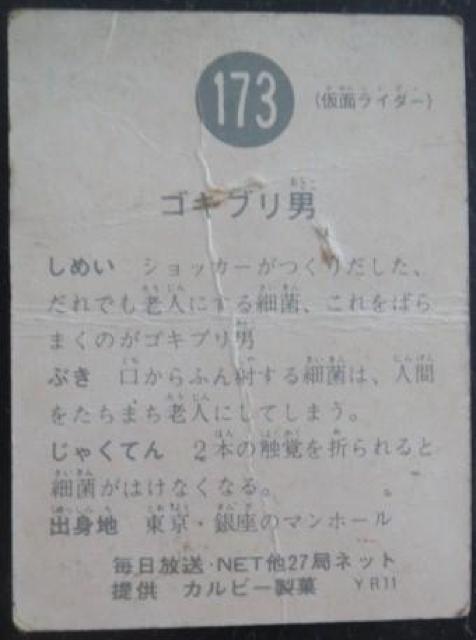 173
(仮面ライダー)
ゴキブリ男
しめい ショッカーがつくりだした、
だれでも老人にする細菌、これをばら
まくのがゴキブリ男
ぶき 口からふん射する細菌は、人間
をたちまち老人にしてしまう。
じゃくてん 2本の触覚を折られると
細菌がはけなくなる。
出身地 東京・銀座のマンホール
毎日放送・NET他27局ネット
提供 カルビー製菓 YR11